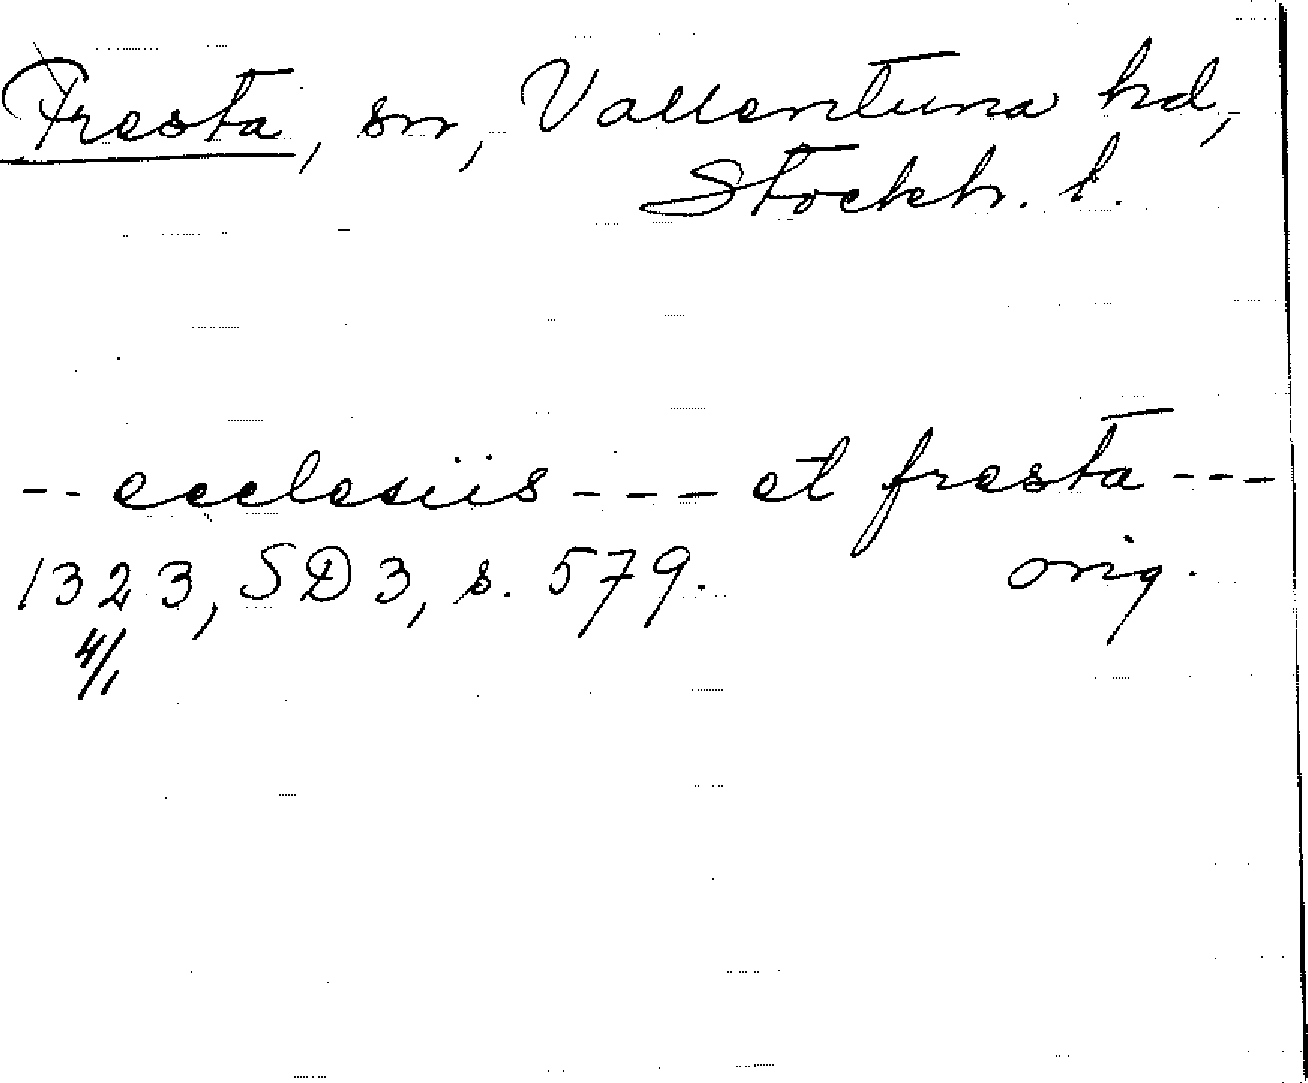 Fresta, sn, Vallentuna hd,
Stockh. l.
-- ecclesiis --- et fresta ---
1323, SD 3, s. 579. orig.
4/1